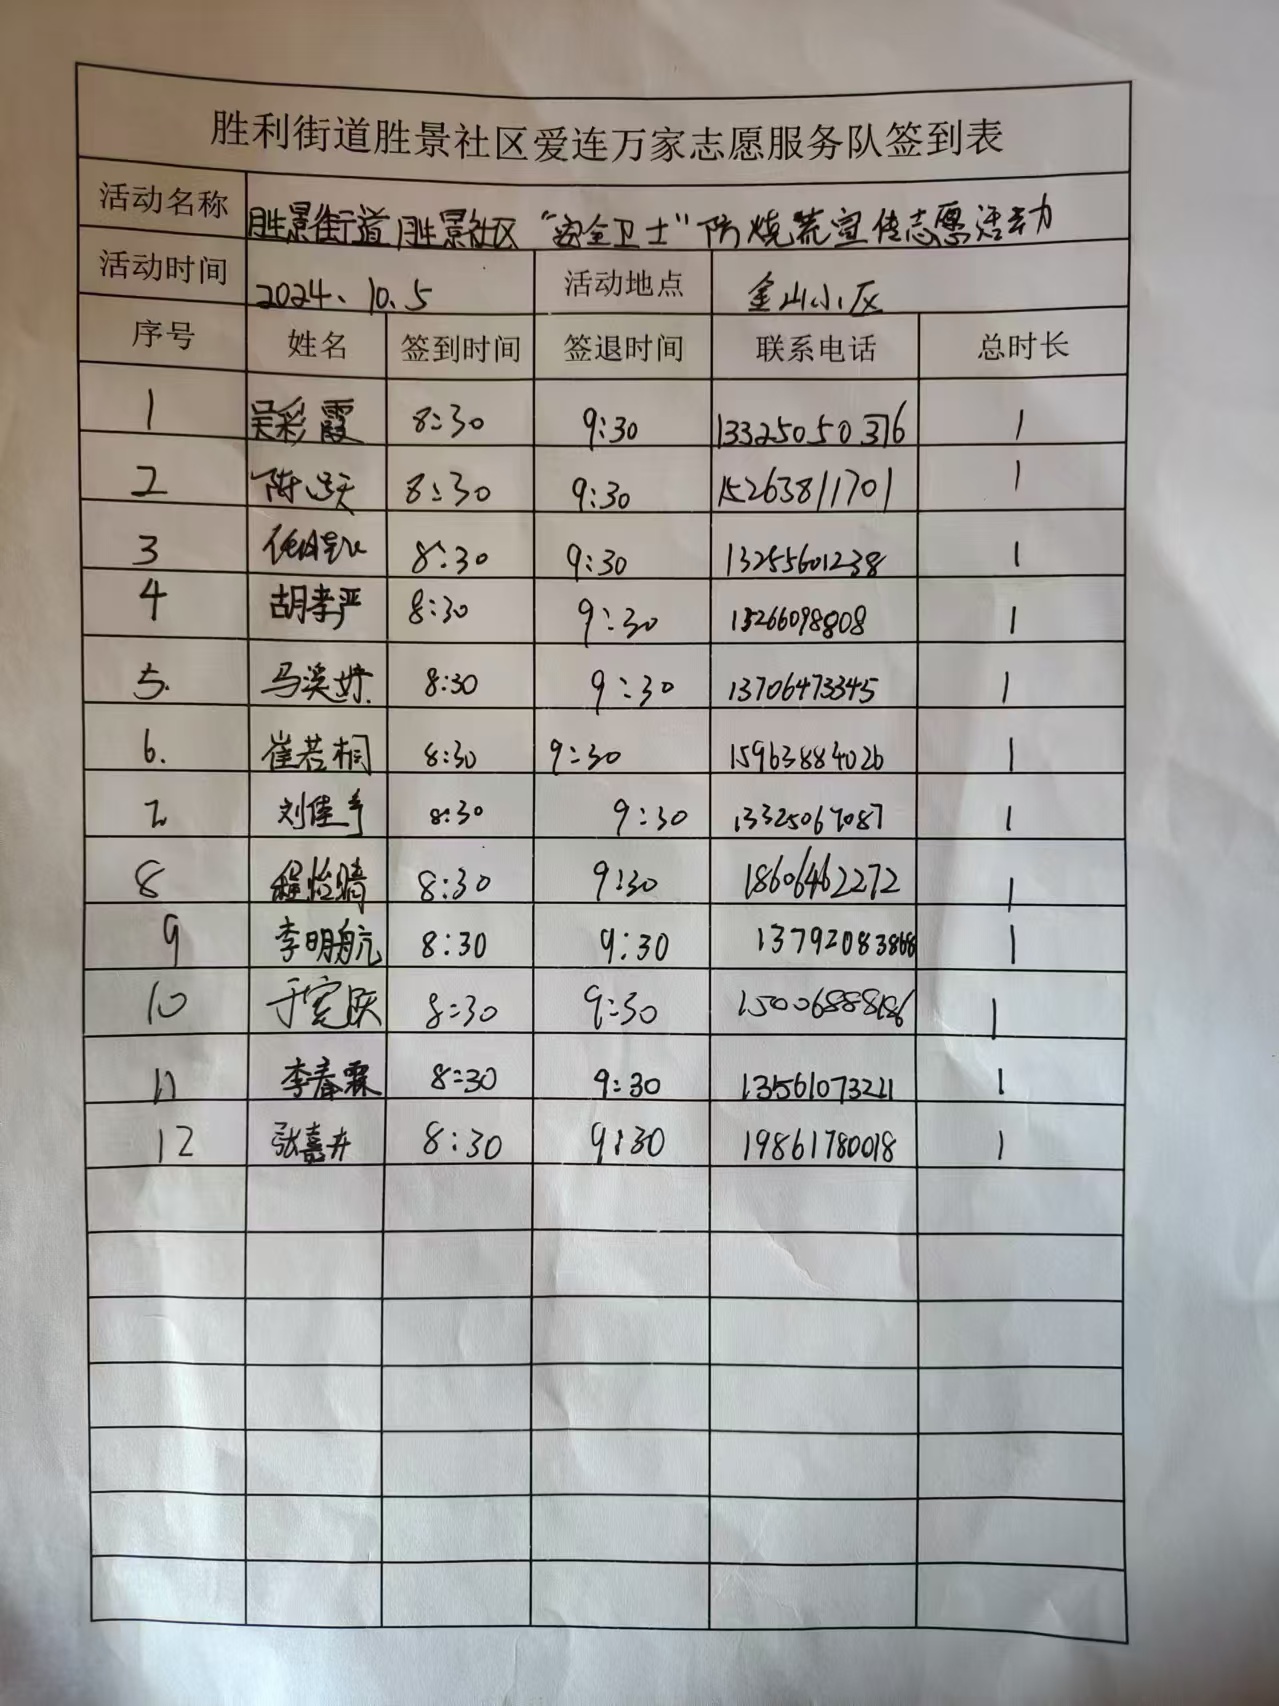 胜利街道胜景社区爱连万家志愿服务队签到表
活动名称 胜景街道胜景社区“安全卫士”防烧荒宣传志愿活动
活动时间 2024、10.5 活动地点 金山小区
序号 姓名 签到时间 签退时间 联系电话 总时长
1 吴彩霞 8:30 9:30 13325050376 1
2 8:30 9:30 15263811701 1
3 8:30 9:30 13255601238 1
4 胡孝严 8:30 9:30 15266098808 1
5. 马溪婷 8:30 9:30 13706473345 1
6. 崔若桐 8:30 9:30 15963884026 1
7. 刘佳 8:30 9:30 13325067087 1
8 程怡晴 8:30 9:30 18606462272 1
9 李明航 8:30 9:30 13792083868 1
10 8:30 9:30 1
11 李春霖 8:30 9:30 13561073211 1
12 张嘉卉 8:30 9:30 19861780018 1